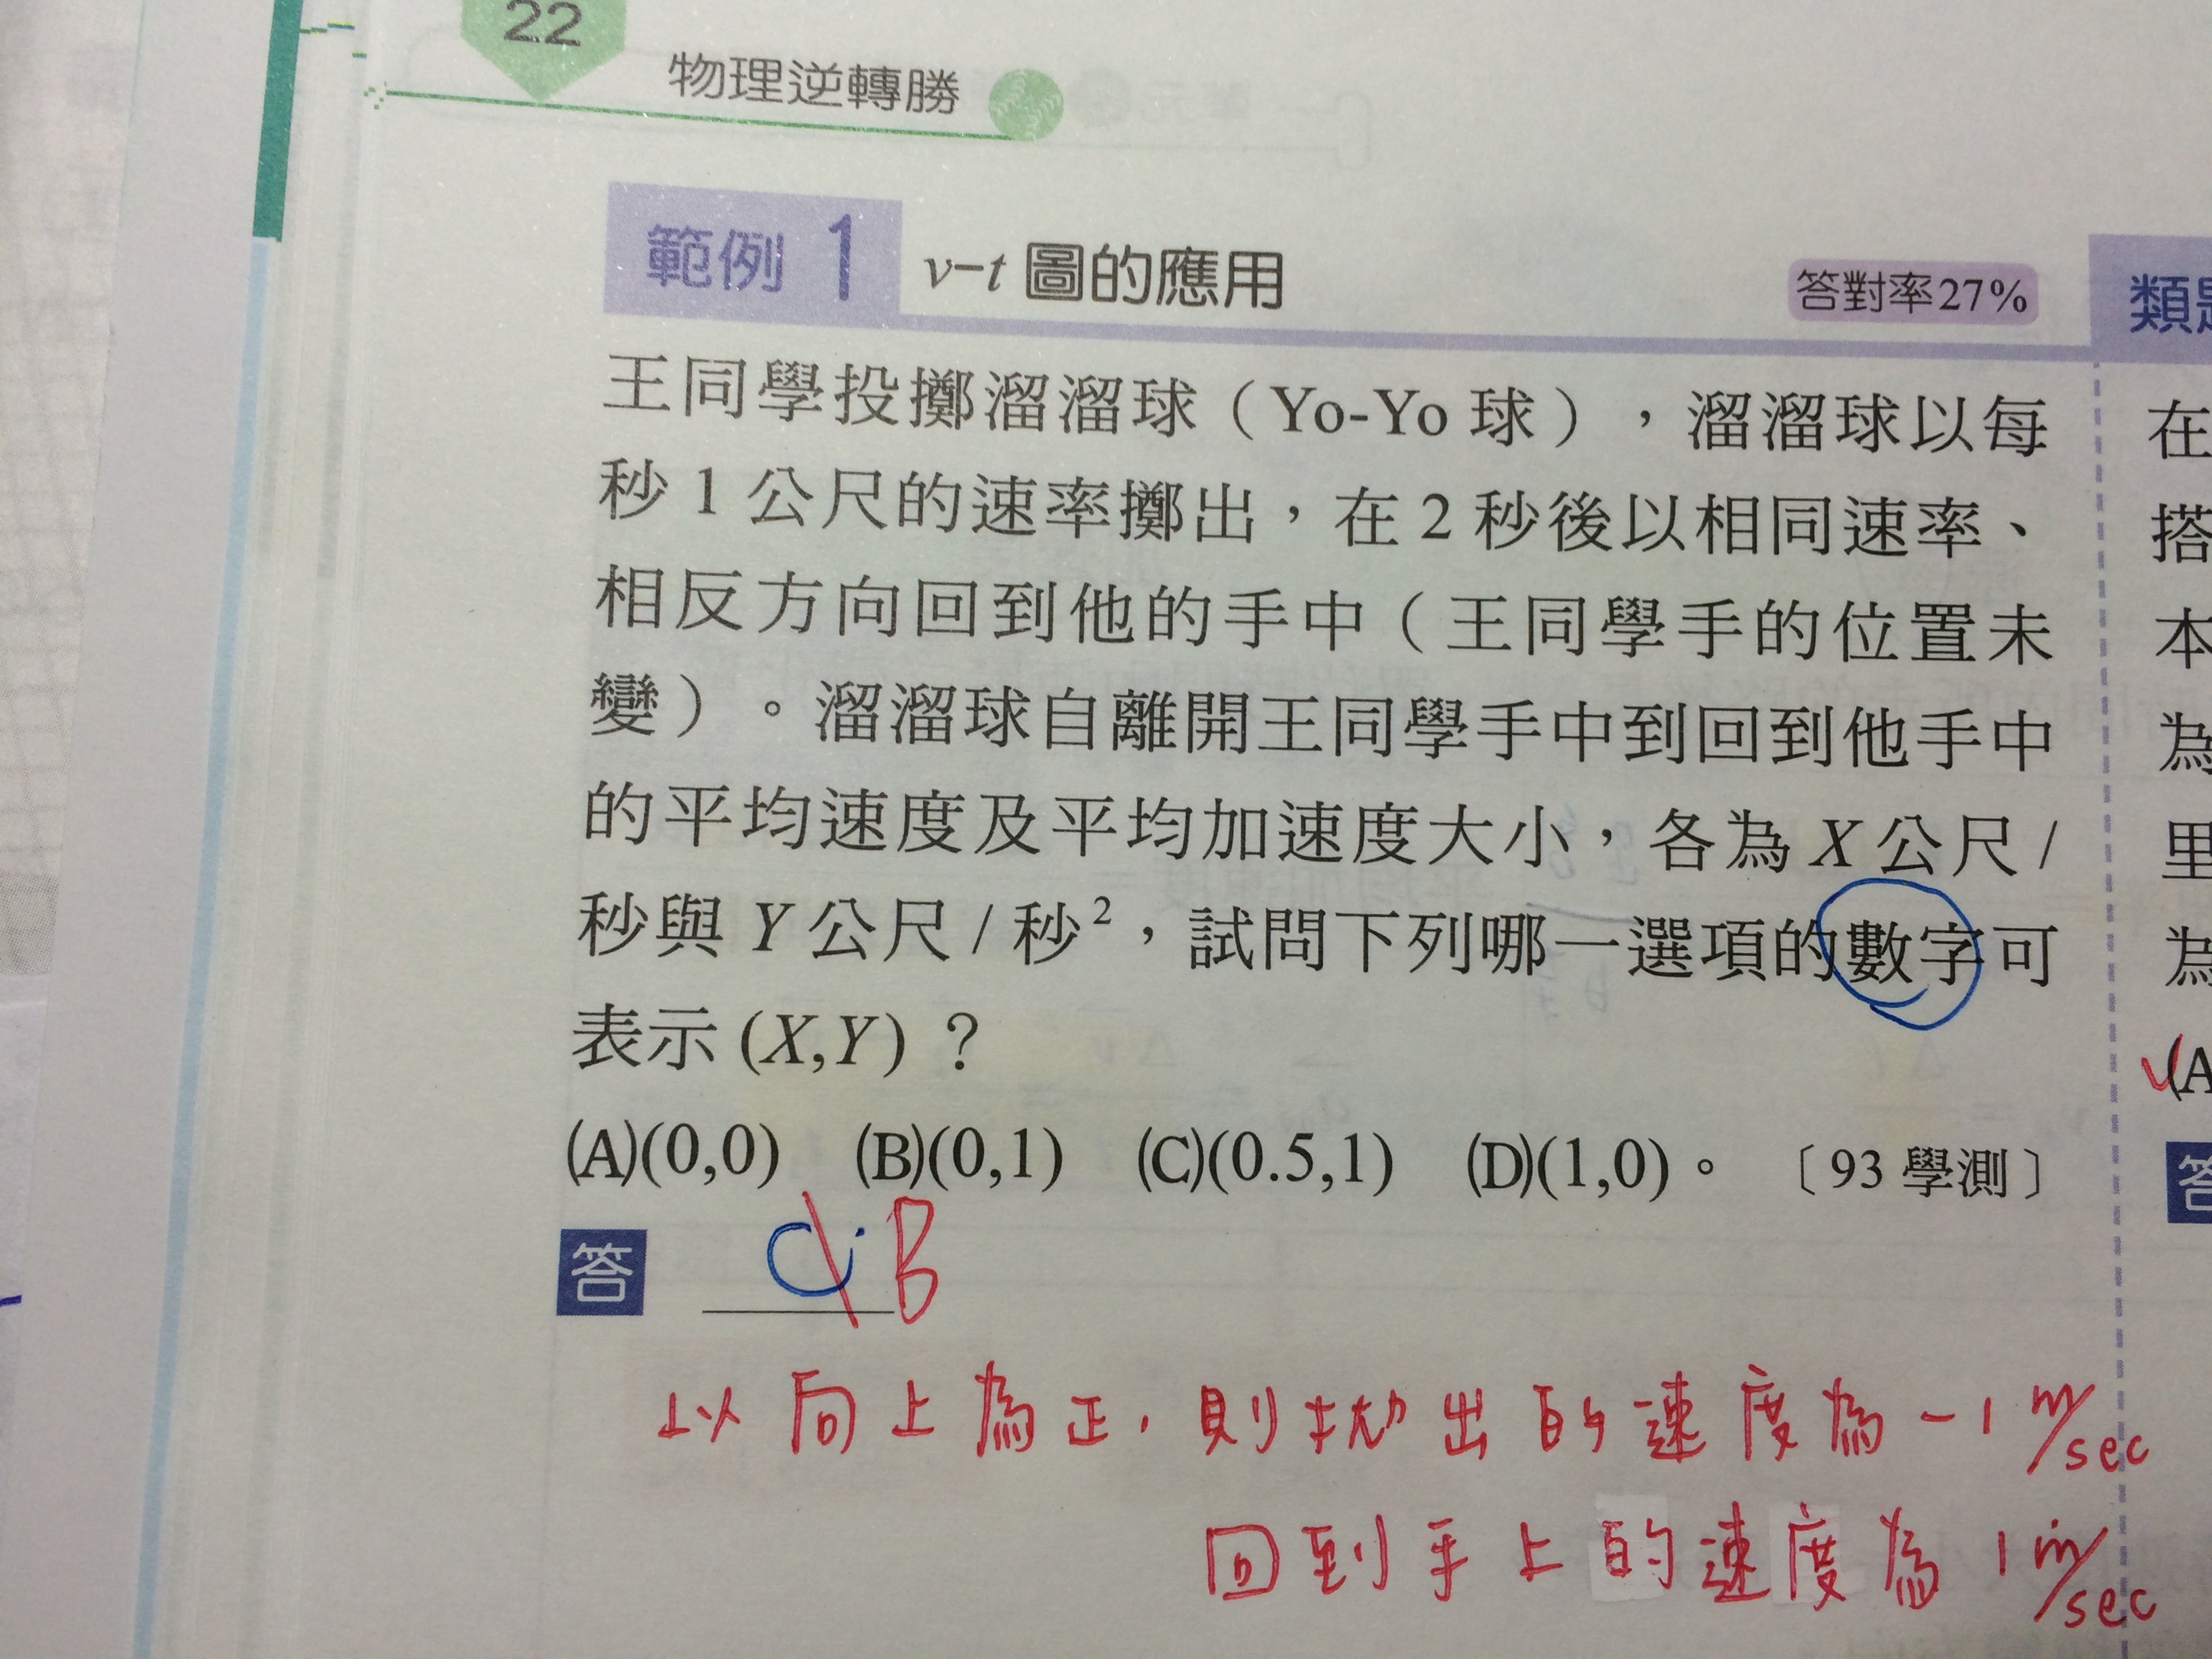 22
物理逆轉勝
範例 1 v-t 圖的應用 答對率27%
王同學投擲溜溜球（Yo-Yo 球），溜溜球以每
秒 1 公尺的速率擲出，在 2 秒後以相同速率、
相反方向回到他的手中（王同學手的位置未
變）。溜溜球自離開王同學手中到回到他手中
的平均速度及平均加速度大小，各為 X 公尺 /
秒與 Y 公尺 / 秒²，試問下列哪一選項的數字可
表示 (X,Y) ？
(A)(0,0) (B)(0,1) (C)(0.5,1) (D)(1,0)。〔93 學測〕
答 C B
以向上為正，則拋出的速度為 -1 m/sec
回到手上的速度為 1 m/sec
類
在
搭
本
為
里
為
(A
答